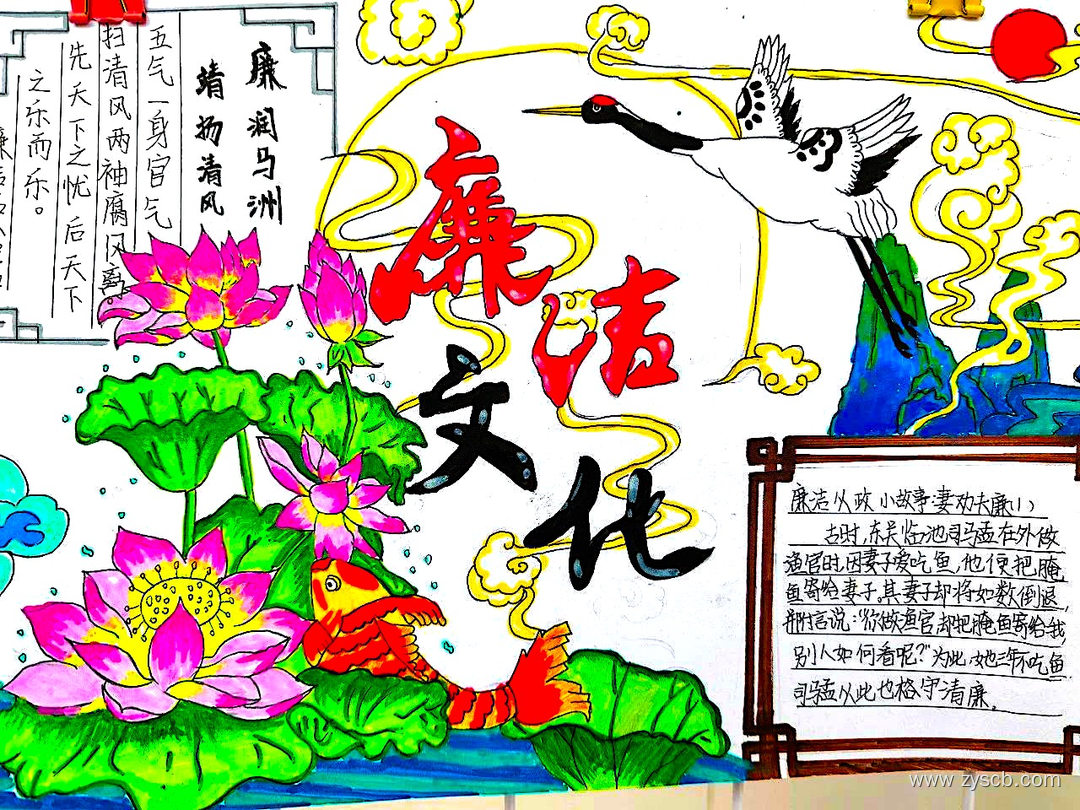 廉润马洲
靖扬清风
五气一身官气
扫清风两袖腐风离。
先天下之忧后天下
之乐而乐。
廉洁
文化
廉洁从政小故事:妻劝夫廉(1)
古时,东吴临池司马孟在外做
渔官时,因妻子爱吃鱼,他便把腌
鱼寄给妻子。其妻子却将如数倒退,
附言说:"你做渔官却把腌鱼寄给我,
别人如何看呢?"为此,她三年不吃鱼
司马孟从此也格守清廉。
www.zyscb.com